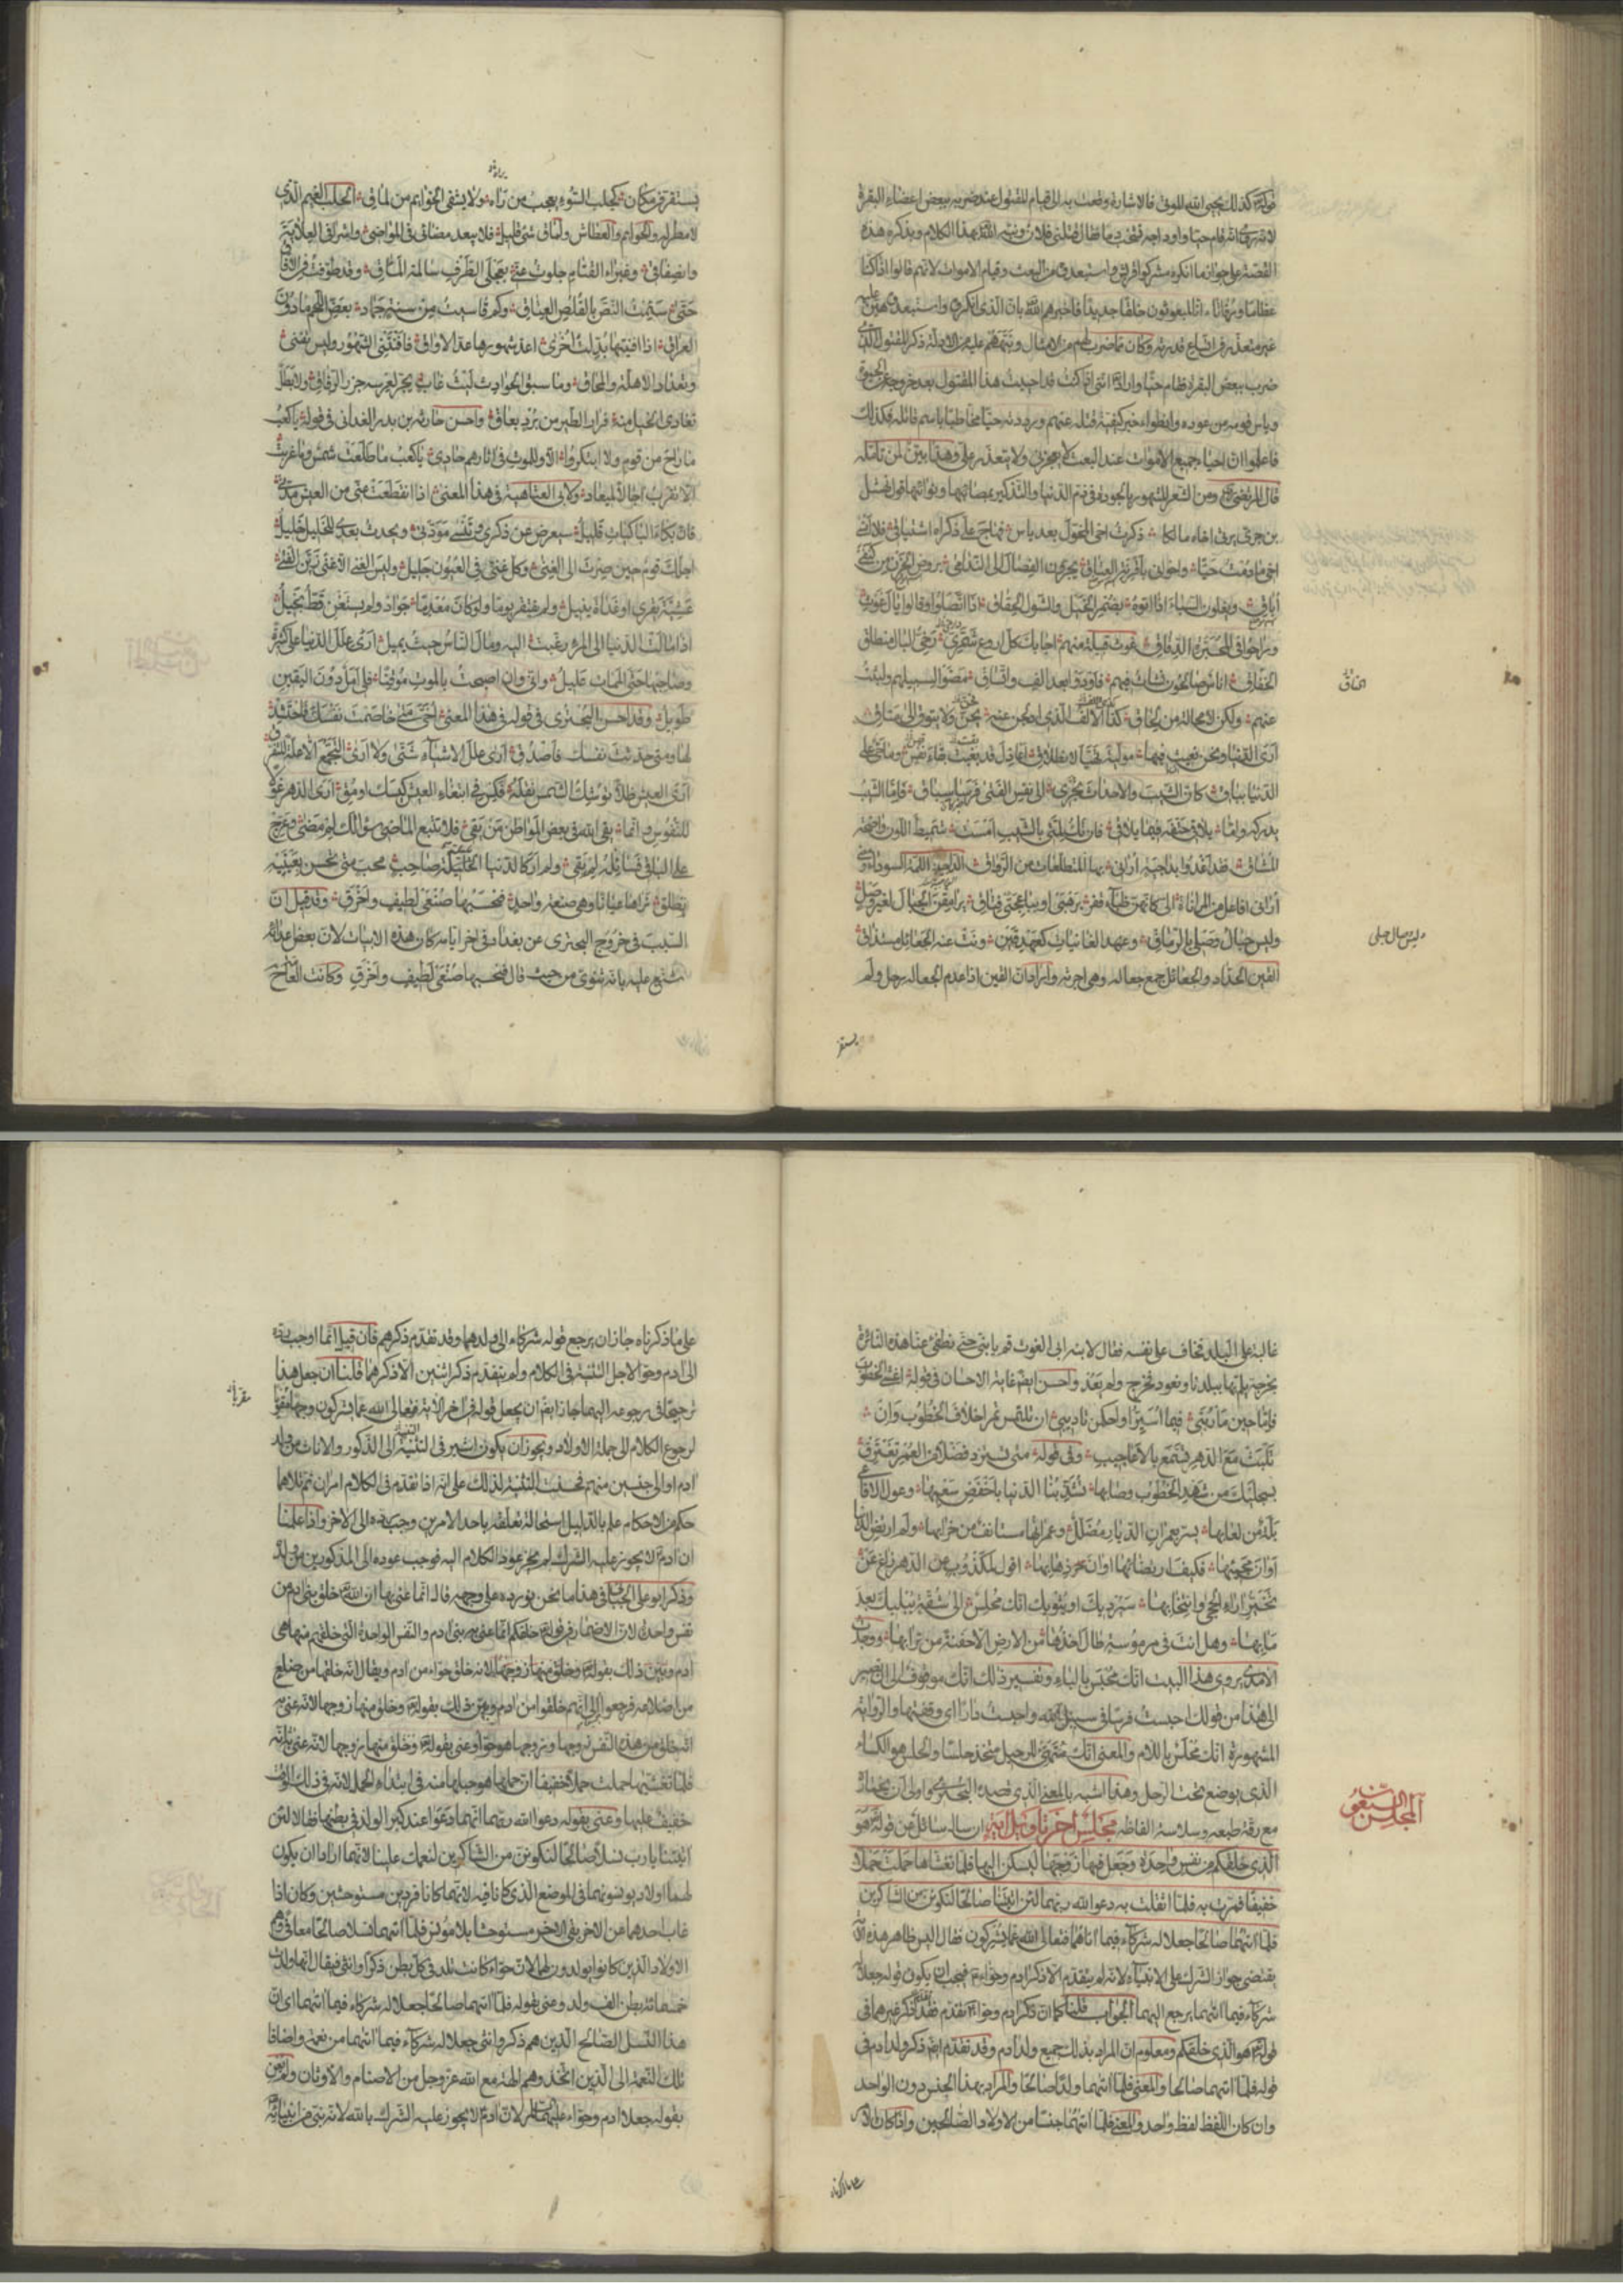 كذلك يحيي الله الموتى فالاشارة وقعت به الى قيام المقتول عند ضربه ببعض اعضاء البقرة
لانه روى انه قام حيا واوداجه تشخب دما فقال قتلنى فلان ونبه الله بهذا الكلام وبذكره هذه
القصة على جواز ما انكره مشركوا قريش واستبعدوه من البعث وقيام الاموات لانهم قالوا ائذا كنا
عظاما ورفاتا ائنا لمبعوثون خلقا جديدا فاخبرهم الله بان الذى انكروه واستبعدوه هين عليه
غير متعذر فى اتساع قدرته وكان مما ضرب لهم من الامثال ونبههم عليه من الادلة ذكر المقتول الذى
ضرب ببعض البقرة فقام حيا واراد اننى اذا كنت قد احييت هذا المقتول بعد خروجه عن الحيوة
وياس قومه من عوده وانطواء خبر كيفية قتله عنهم ورددته حيا مخاطبا باسم قاتله فكذلك
فاعلموا ان احياء جميع الاموات عند البعث لا يعجزنى ولا يتعذر على وهذا بين لمن تامله
قال المرتضى ومن الشعر المشهور بالجودة فى ذم الدنيا والتذكير بمصائبها ونوائبها قول نهشل
بن حرى يرثى اخاه مالكا ذكرت اخى المخول بعد ياس فهاج على ذكراه اشتياقى فلا انسى
اخى ما دمت حيا واخوانى باقرية العناق يجرون الفصال الى الندامى بروض الحزن من كنفى
افاق ويغلون السباء اذا اتوه بضمر الخيل والشول الحقاق اذا اتصلوا وقالوا يال غوث
وراحوا فى المحبرة الرقاق اجابك كل اروع شمرى رخى البال منطلق
الخناق اناس صالحون نشات فيهم فاودوا بعد الف واتساق مضوا لسبيلهم ولبثت
عنهم ولكن لا محالة من لحاق
ارى الدنيا ونحن نعيث فيها مولية تهيا لانطلاق اعاذل قد بقيت بقاء نفس وما حى على
الدنيا بباق كان الشيب والاحداث تجرى الى نفس الفتى فرسا سباق فاما الشيب
يدركه واما يلاقى حتفه فيما يلاقى فان تك لمتى بالشيب امست شميط اللون واضحة
المشاق فقد اغدو بداجية ارانى بها المتطلعات من الرواق الداجية اللمة السوداء
وليس حبال وصلى بالرماق وعهد الغانيات كعهد قين ونت عنه الجعائل مستذاق
القين الحداد والجعائل جمع جعالة وهى اجرته واراد ان القين اذا عدم الجعالة رحل ولم
الخناق
يستقر
يستقر فى مكان كجلب السوء يعجب من رآه ولا يشفى الحوائم من لماق الجلب الغيم الذى
لا مطر له والحوائم العطاش ولماق شىء قليل فلا يبعد مضائى فى المواضى واشراقى العلاية
واصطفاقى وغبراء القتام جلوت عنى بعجلى الطرف سالمة المآق وقد طوفت فى الآفاق
حتى سئمت النص بالقلص العتاق وكم قاسيت من سنة جماد تعض اللحم ما دون
العراق اذا افنيتها بدلت اخرى اعد شهورها عد الاواقى فافنتنى الشهور وليس تفنى
وتعداد الاهلة والمحاق وما سبق الحوادث ليث غاب يجر لعرسه جزر الرفاق ولا بطل
تفادى الخيل منه فرار الطير من برد بعاق واحسن حارثة بن بدر الغدانى فى قوله يا كعب
ما راح من قوم ولا ابتكروا الا وللموت فى آثارهم حادى يا كعب ما طلعت شمس ولا غربت
الا تقرب آجالا لميعاد ولابى العتاهية فى هذا المعنى اذا انقطعت عنى من العيش مدتى
فان بكاء الباكيات قليل سيعرض عن ذكرى وتنسى مودتى ويحدث بعدى للخليل خليل
اجلك قوم حين صرت الى الغنى وكل غنى فى العيون جليل وليس الغنى الا غنى زين الفتى
عشية يقرى او غداة ينيل ولم يفتقر يوما ولو كان معدما جواد ولم يستغن قط بخيل
اذا مالت الدنيا الى المرء رغبت اليه ومال الناس حيث يميل ارى علل الدنيا على كثيرة
وصاحبها حتى الممات عليل وانى وان اصبحت بالموت موقنا فلى امل دون اليقين
طويل وقد احسن البحترى فى قوله فى هذا المعنى اخى متى خاصمت نفسك فاحتشد
لها ومتى حدثت نفسك فاصدق ارى علل الاشياء شتى ولا ارى التجمع الا علة للتفرق
ارى العيش ظلا توشك الشمس نقله فكس فى ابتغاء العيش كيسك او مق ارى الدهر غولا
للنفوس وانما يقى الله فى بعض المواطن من يقى فلا تتبع الماضى سؤالك لم مضى وعرج
على الباقى فسائله لم بقى ولم ار كالدنيا حليلة صاحب محب متى تحسن بعينيه
تطلق تراها عيانا وهى صنعة واحد فتحسبها صنعى لطيف واخرق وقد قيل ان
السبب فى خروج البحترى عن بغداد فى آخر ايامه كان هذه الابيات لان بعض اعدائه
شنع عليه بانه ثنوى من حيث قال فتحسبها صنعى لطيف واخرق وكانت العامة
غالبة على البلد فخاف على نفسه فقال لابنه ابى الغوث قم يا بنى حتى نطفئ عنا هذه النائرة
بخرجة نلم بها ببلدنا ونعود فخرج ولم يعد واحسن ايضا غاية الاحسان فى قوله
تلبث مع الدهر تستمع بالاعاجيب وفى قوله متى تستزد فضلا من العمر تغترف
بسجليك من شهد الخطوب وصابها تشذبنا الدنيا باخفض سعيها وغول الافاعى
بلة من لعابها يسر بعمران الديار مضلل وعمرانها مستانف من خرابها ولم ارتض الدنيا
اوان مجيئها فكيف ارتضائيها اوان ذهابها اقول لمكذوب عن الدهر زاغ عن
تخير آراء الحجى وانتخابها سيرديك او يثويك انك محلس الى شقة يبليك بعد
مآبها وهل انت فى مرموسة طال اخذها من الارض الا حفنة من ترابها ووجدت
الآمدى يروى هذا البيت انك محبس بالباء وتفسير ذلك انك موقوف الى ان تصير
الى هذا من قولك احبست فرسا فى سبيل الله واحبست دارا اى وقفتها والرواية
المشهورة انك محلس باللام والمعنى انك متهيئ للرحيل متخذ حلسا والحلس هو الكساء
الذى يوضع تحت الرحل وهذا اشبه بالمعنى الذى قصده البحترى واولى ان يختاره
مع رقة طبعه وسلاسة الفاظه مجلس آخر تاويل آية ان سال سائل عن قوله هو
الذى خلقكم من نفس واحدة وجعل منها زوجها ليسكن اليها فلما تغشاها حملت حملا
خفيفا فمرت به فلما اثقلت دعوا الله ربهما لئن آتيتنا صالحا لنكونن من الشاكرين
فلما آتيهما صالحا جعلا له شركاء فيما آتاهما فتعالى الله عما يشركون فقال اليس ظاهر هذه الآية
يقتضى جواز الشرك على الانبياء لانه لم يتقدم الا ذكر آدم وحواء فيجب ان يكون قوله جعلا
شركاء فيما آتيهما يرجع اليهما الجواب قلنا كما ان ذكر آدم وحواء تقدم فقد تقدم ذكر غيرهما فى
قوله هو الذى خلقكم ومعلوم ان المراد بذلك جميع ولد آدم وقد تقدم ايضا ذكر ولد آدم فى
قوله فلما آتيهما صالحا والمعنى فلما آتيهما ولدا صالحا والمراد بهذا الجنس دون الواحد
وان كان اللفظ لفظ واحد والمعنى فلما آتيهما جنسا من الاولاد الصالحين واذا كان الامر
المجلس السبعون
على ما ذكرناه
على ما ذكرناه جاز ان يرجع قوله شركاء الى ولدهما وقد تقدم ذكرهم فان قيل انما اوجب رده
الى آدم وحواء لاجل التثنية فى الكلام ولم يتقدم ذكر اثنين الا ذكرهما قلنا ان جعل هذا
ترجيحا فى رجوعه اليهما جاز ايضا ان يجعل قوله فى آخر الآية فتعالى الله عما يشركون وجها مقويا
لرجوع الكلام الى جملة الاولاد ويجوز ان يكون اشير فى التثنية الى الذكور والاناث من ولد
آدم او الى جنسين منهم فحسنت التثنية لذلك على انه اذا تقدم فى الكلام امران ثم تلاهما
حكم من الاحكام علم بالدليل استحالة تعلقه باحد الامرين وجب رده الى الآخر واذا علمنا
ان آدم لا يجوز عليه الشرك لم يجز عود الكلام اليه فوجب عوده الى المذكورين من ولده
وذكر ابو على الجبائى فى هذا ما نحن نورده على وجهه قال انما عنى بها ان الله خلق بنى آدم من
نفس واحدة لان الاضمار فى قوله خلقكم انما عنى به بنى آدم والنفس الواحدة التى خلقهم منها هى
آدم وبين ذلك بقوله وخلق منها زوجها لانه خلق حواء من آدم ويقال انه خلقها من ضلع
من اضلاعه فرجعوا الى انهم خلقوا من آدم وبين ذلك بقوله وخلق منها زوجها لانه عنى به
انه خلق من هذه النفس زوجها وزوجها هو حواء وعنى بقوله
فلما تغشيها حملت حملا خفيفا ان حملها هو حبلها منه فى ابتداء الحمل لانه فى ذلك الوقت
خفيف عليها وعنى بقوله دعوا الله ربهما انهما دعوا عند كبر الولد فى بطنها فقالا لئن
آتيتنا يا رب نسلا صالحا لنكونن من الشاكرين لنعمك علينا لانهما ارادا ان يكون
لهما اولاد يونسونهما فى الموضع الذى كانا فيه لانهما كانا فردين مستوحشين وكان اذا
غاب احدهما عن الآخر بقى الآخر مستوحشا بلا مونس فلما آتيهما نسلا صالحا معافى وهم
الاولاد الذين كانوا يولدون لهما لان حواء كانت تلد فى كل بطن ذكرا وانثى فيقال انها ولدت
خمسمائة بطن الف ولد وعنى بقوله فلما آتيهما صالحا جعلا له شركاء فيما آتيهما اى ان
هذا النسل الصالح الذين هم ذكر وانثى جعلا له شركاء فيما آتيهما من نعمه واضافا
تلك النعمة الى الذين اتخذوهم آلهة مع الله عز وجل من الاصنام والاوثان ولم يعن
بقوله جعلا آدم وحواء لان آدم لا يجوز عليه الشرك بالله لانه نبى من انبيائه